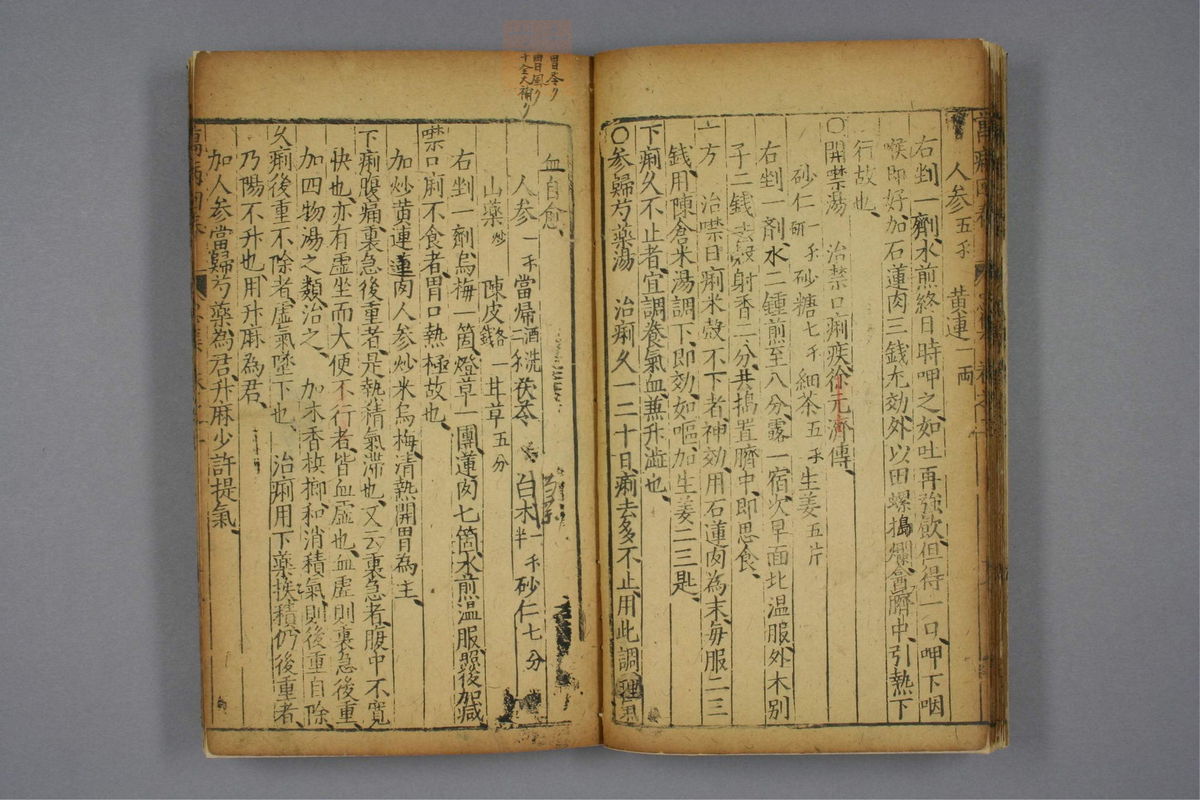 人參五戔 黃連一両
右剉一劑水煎終日時呷之如吐再強飲但得一口呷下咽
喉即好加石蓮肉三錢尤効外以田螺搗爛盦臍中引熱下
行故也
〇開噤湯 治禁口痢疾徐元濟傳
砂仁研一戔砂糖七戔細茶五戔生姜五片
右剉一剤水二鍾煎至八分露一宿次早面北温服外木別
子二錢去殼射香二分共搗置臍中即思食
一方 治噤口痢米殼不下者神効用石蓮肉為末每服二三
錢用陳倉米湯調下即効如嘔加生姜二三匙
下痢久不止者宜調養氣血兼升澁也
〇参歸芍藥湯 治痢久一二十日痢去多不止用此調理
血自愈
人參一戔當歸酒洗二戔茯苓 白术一戔半砂仁七分
山藥炒 陳皮各一錢甘草五分
右剉一劑烏梅一箇燈草一團蓮肉七箇水煎温服照後加減
噤口痢不食者胃口熱極故也
加炒黃連蓮肉人參炒米烏梅清熱開胃為主
下痢腹痛裏急後重者是熱積氣滯也又云裏急者腹中不寬
快也亦有虛坐而大便不行者皆血虛也血虛則裏急後重
加四物湯之類治之 加木香檳榔和消積氣則後重自除
久痢後重不除者虛氣墜下也 治痢用下藥挨積仍後重者
乃陽不升也用升麻為君
加人參當歸芍藥為君升麻少許提氣